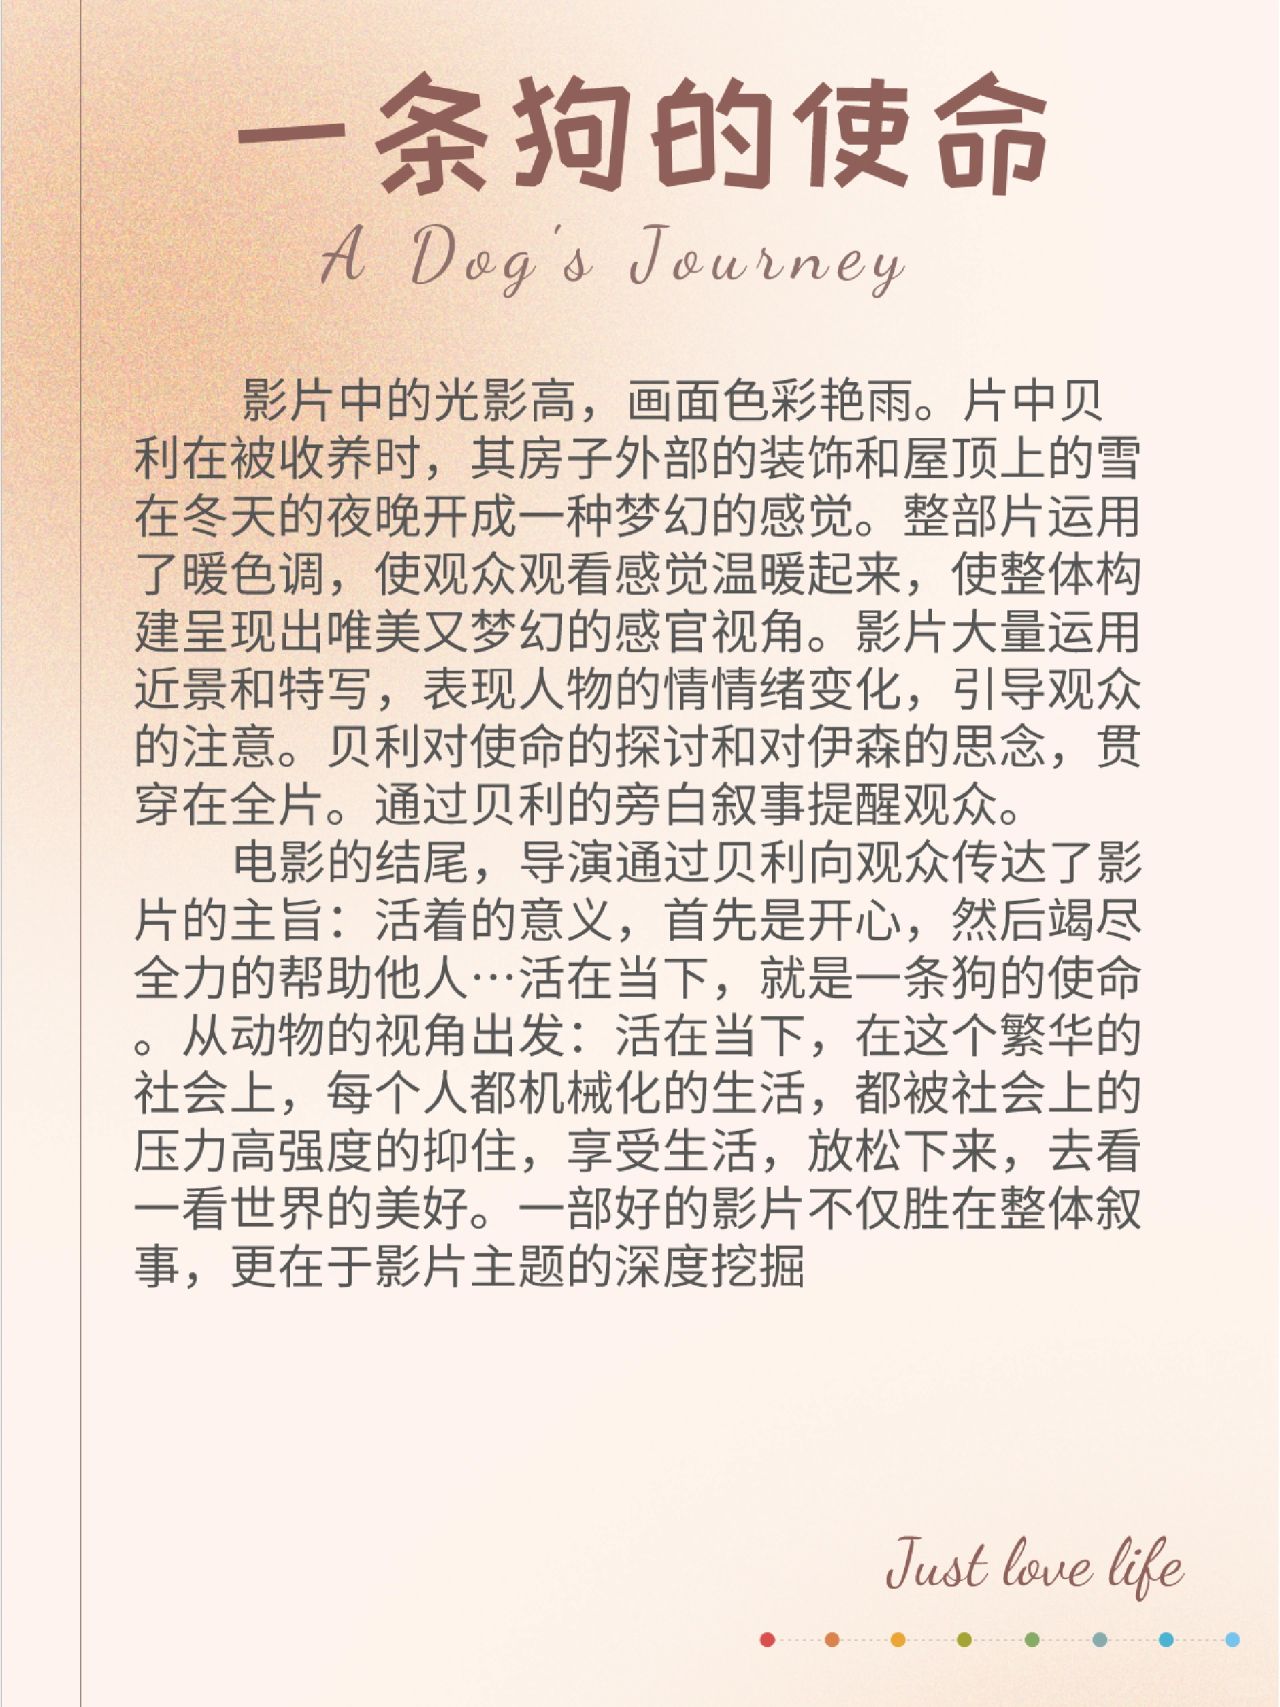 一条狗的使命
A Dog's Journey
影片中的光影高，画面色彩艳雨。片中贝
利在被收养时，其房子外部的装饰和屋顶上的雪
在冬天的夜晚开成一种梦幻的感觉。整部片运用
了暖色调，使观众观看感觉温暖起来，使整体构
建呈现出唯美又梦幻的感官视角。影片大量运用
近景和特写，表现人物的情情绪变化，引导观众
的注意。贝利对使命的探讨和对伊森的思念，贯
穿在全片。通过贝利的旁白叙事提醒观众。
电影的结尾，导演通过贝利向观众传达了影
片的主旨：活着的意义，首先是开心，然后竭尽
全力的帮助他人…活在当下，就是一条狗的使命
。从动物的视角出发：活在当下，在这个繁华的
社会上，每个人都机械化的生活，都被社会上的
压力高强度的抑住，享受生活，放松下来，去看
一看世界的美好。一部好的影片不仅胜在整体叙
事，更在于影片主题的深度挖掘
Just love life